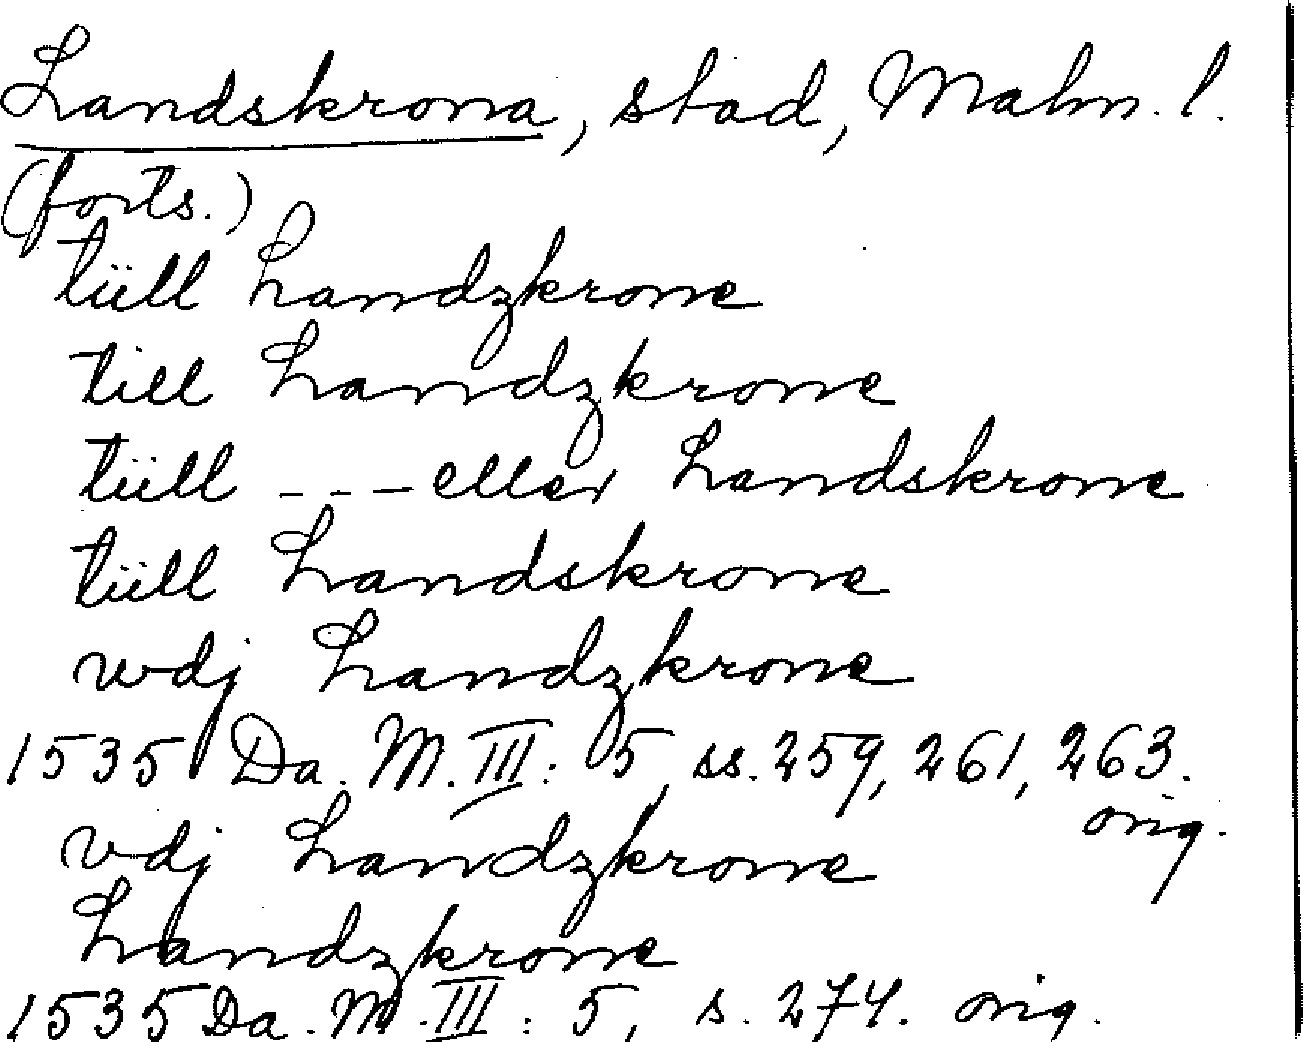 Landskrona, stad, Malm. l.
(forts.)
tüll Landzkrone
till Landzkrone
tüll --- eller Landskrone
tüll Landskrone
wdj Landzkrone
1535 Da. M. III: 5, ss. 259, 261, 263.
orig.
vdj Landzkrone
Landzkrone
1535 Da. M. III: 5, s. 274. orig.